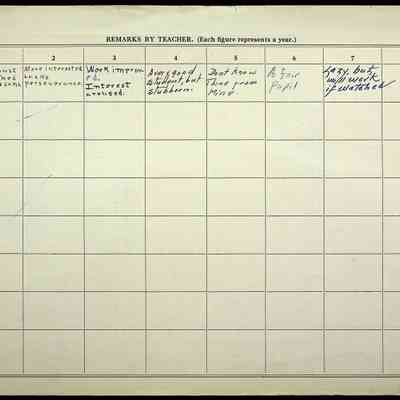 REMARKS BY TEACHER. (Each figure represents a year.)
2 3 4 5 6 7
More interested
Lacks
perseverance.
Work improv-
ed.
Interest
aroused.
Very good
student, but
stubborn.
Dont Know
Thine from
Mine.
A
Fair
Pupil
Lazy, but
will work
if watched